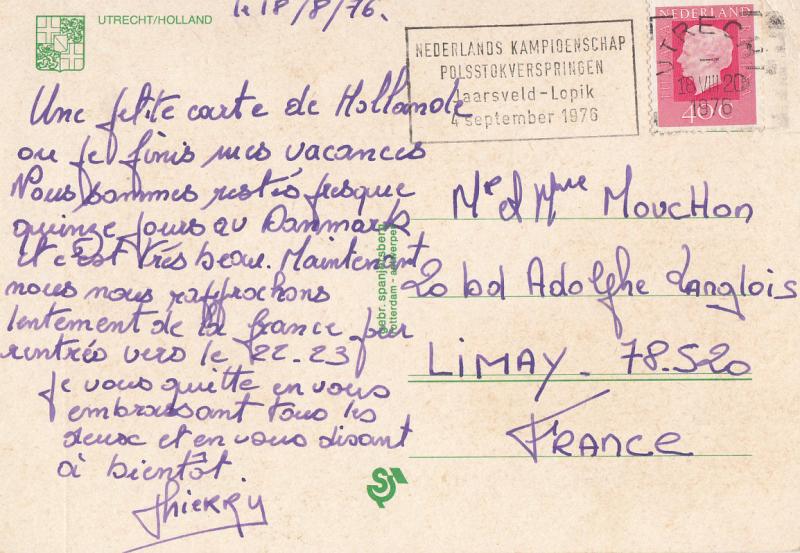 le 18/8/76.
UTRECHT/HOLLAND
Une petite carte de Hollande
ou je finis mes vacances
Nous sommes restés presque
quinze jours au Danmark
et c'est très beau. Maintenant
nous nous rapprochons
lentement de la france pour
rentrés vers le 22-23
je vous quitte en vous
embrassant tous les
deux et en vous disant
à bientôt.
Thierry
NEDERLANDS KAMPIOENSCHAP
POLSSTOKVERSPRINGEN
Jaarsveld-Lopik
4 september 1976
NEDERLAND
UTRECHT
18 VIII 20
1976
40c
Mr et Mme MOUCHON
20 bd Adolphe Langlois
LIMAY - 78.520
FRANCE
gebr. spanjersberg
rotterdam - antwerpen